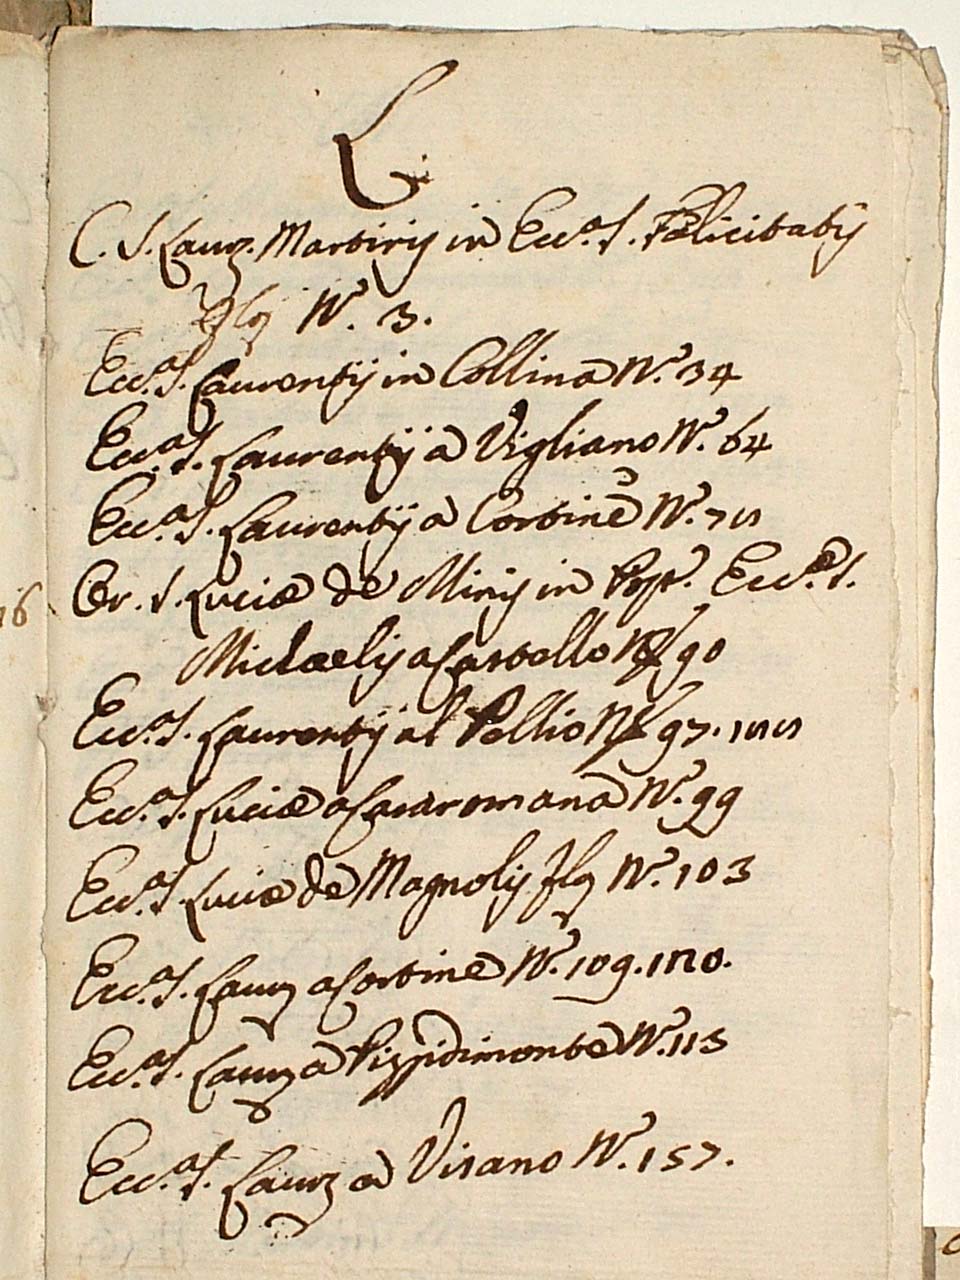 L
C. S. Laur. Martirij in Ecc.a S. Felicitatis
Flo N.o 3.
Ecc.a S. Laurentij in Collina N.o 34
Ecc.a S. Laurentij a Vigliano N.o 64
Ecc.a S. Laurentij a Cortine N.o 75
Or. S. Luciæ de Minij in Pop. Ecc.æ S.
Michaelis a Castello N.o 90
Ecc.a S. Laurentij al Pellio N.o 97. 155
Ecc.a S. Luciæ a Casaromana N.o 99
Ecc.a S. Luciæ de Magnolis Flo N.o 103
Ecc.a S. Laur a Cortine N.o 109. 110.
Ecc.a S. Laur a Pizzidimonte N.o 113
Ecc.a S. Laur a Visano N.o 157.